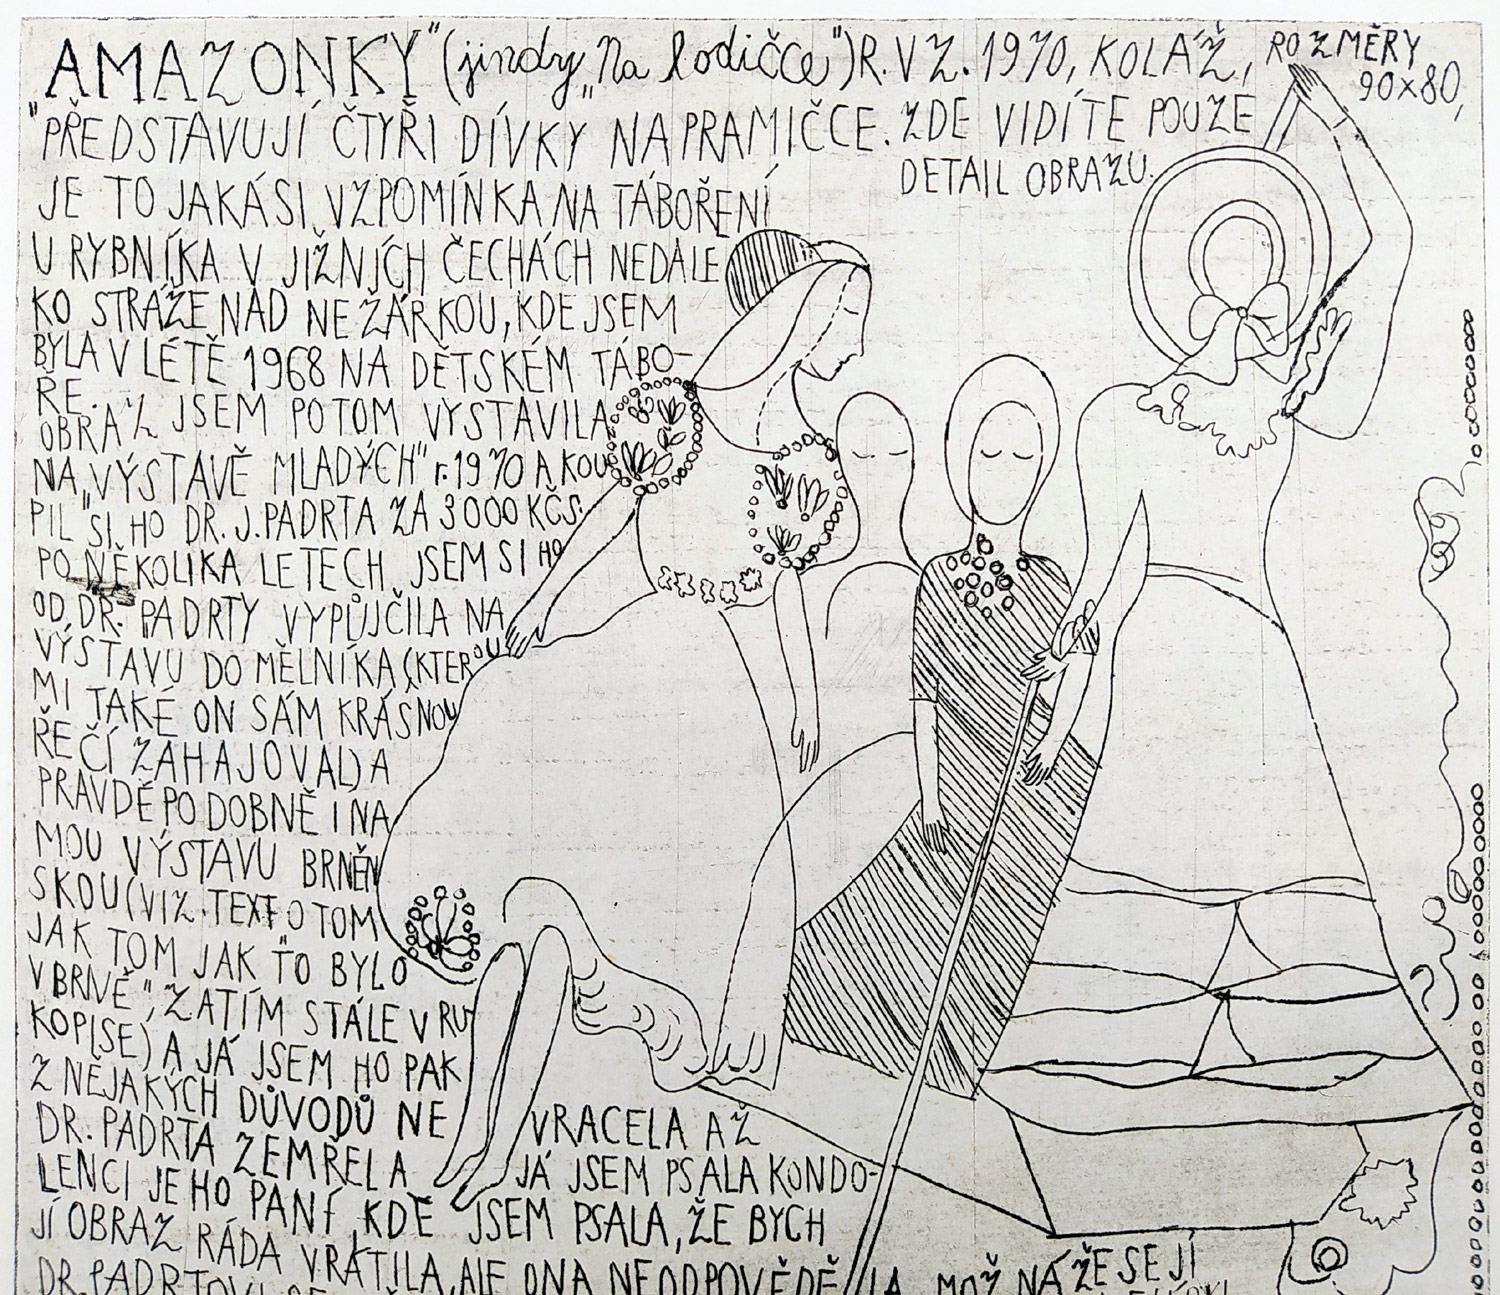 AMAZONKY" (jindy „Na lodičce") R. VZ. 1970, KOLÁŽ, ROZMĚRY
90×80,
"PŘEDSTAVUJÍ ČTYŘI DÍVKY NA PRAMIČCE. ZDE VIDÍTE POUZE
DETAIL OBRAZU.
JE TO JAKÁSI VZPOMÍNKA NA TÁBOŘENÍ
U RYBNÍKA V JIŽNÍCH ČECHÁCH NEDALE
KO STRÁŽE NAD NEŽÁRKOU, KDE JSEM
BYLA V LÉTĚ 1968 NA DĚTSKÉM TÁBO-
ŘE.
OBRAZ JSEM POTOM VYSTAVILA
NA „VÝSTAVĚ MLADÝCH" r. 1970 A KOU
PIL SI HO DR. J. PADRTA ZA 3000 KČS.
PO NĚKOLIKA LETECH JSEM SI HO
OD DR. PADRTY VYPŮJČILA NA
VÝSTAVU DO MĚLNÍKA (KTEROU
MI TAKÉ ON SÁM KRÁSNOU
ŘEČÍ ZAHAJOVAL) A
PRAVDĚPODOBNĚ I NA
MOU VÝSTAVU BRNĚN
SKOU (VIZ. TEXT O TOM
JAK TOM JAK TO BYLO
V BRNĚ", ZATÍM STÁLE V RU
KOPISE) A JÁ JSEM HO PAK
Z NĚJAKÝCH DŮVODŮ NE VRACELA AŽ
DR. PADRTA ZEMŘEL A JÁ JSEM PSALA KONDO-
LENCI JEHO PANÍ, KDE JSEM PSALA, ŽE BYCH
JÍ OBRAZ RÁDA VRÁTILA, ALE ONA NEODPOVĚDĚLA, MOŽNÁ ŽE SE JÍ
DR. PADRTOVI